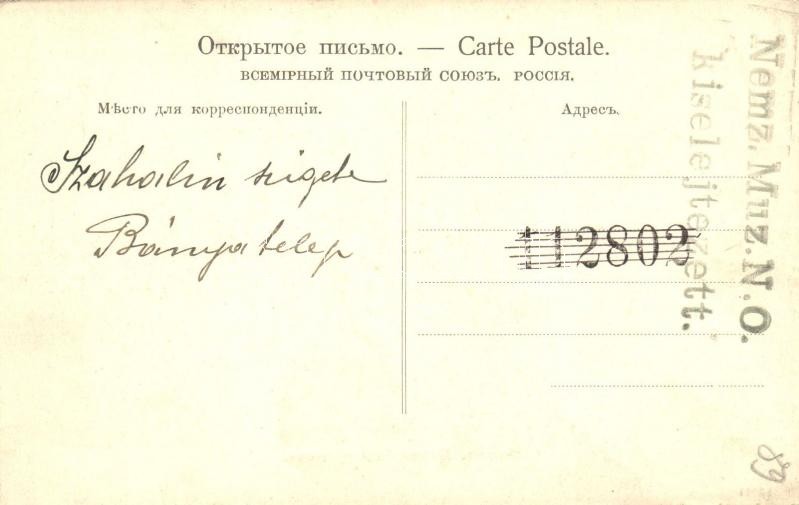 Открытое письмо. — Carte Postale.
ВСЕМІРНЫЙ ПОЧТОВЫЙ СОЮЗЪ. РОССІЯ.
Мѣсто для корреспонденціи.
Адресъ.
Szahalin szigete
Bányatelep
112802
Nemz. Muz. N.O.
kiselejtezett.
89